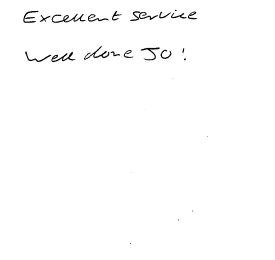 Excellent service
Well done Jo!